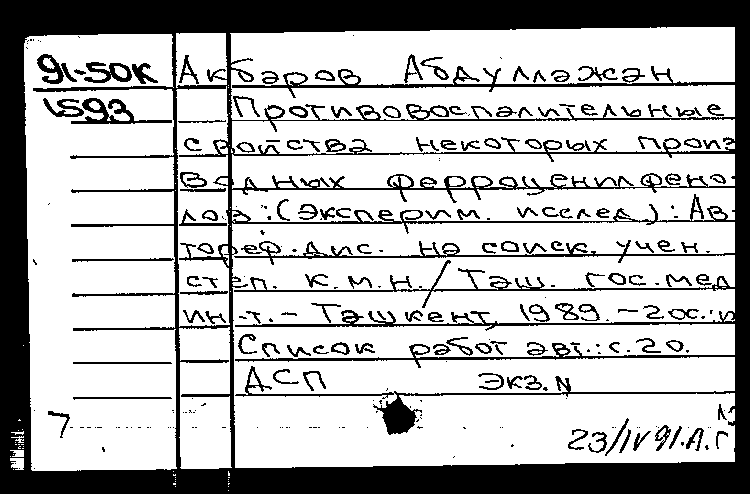 91-50К Акбаров Абдуллажан
1593 Противовоспалительные
свойства некоторых произ
водных ферроценилфено-
лов: (Эксперим. исслед): Ав-
тореф. дис. на соиск. учен.
степ. к.м.н. / Таш. гос. мед
ин-т. - Ташкент, 1989. - 20с.: и
Список работ авт.: с. 20.
ДСП Экз. N
7
23/IV 91. А. Г